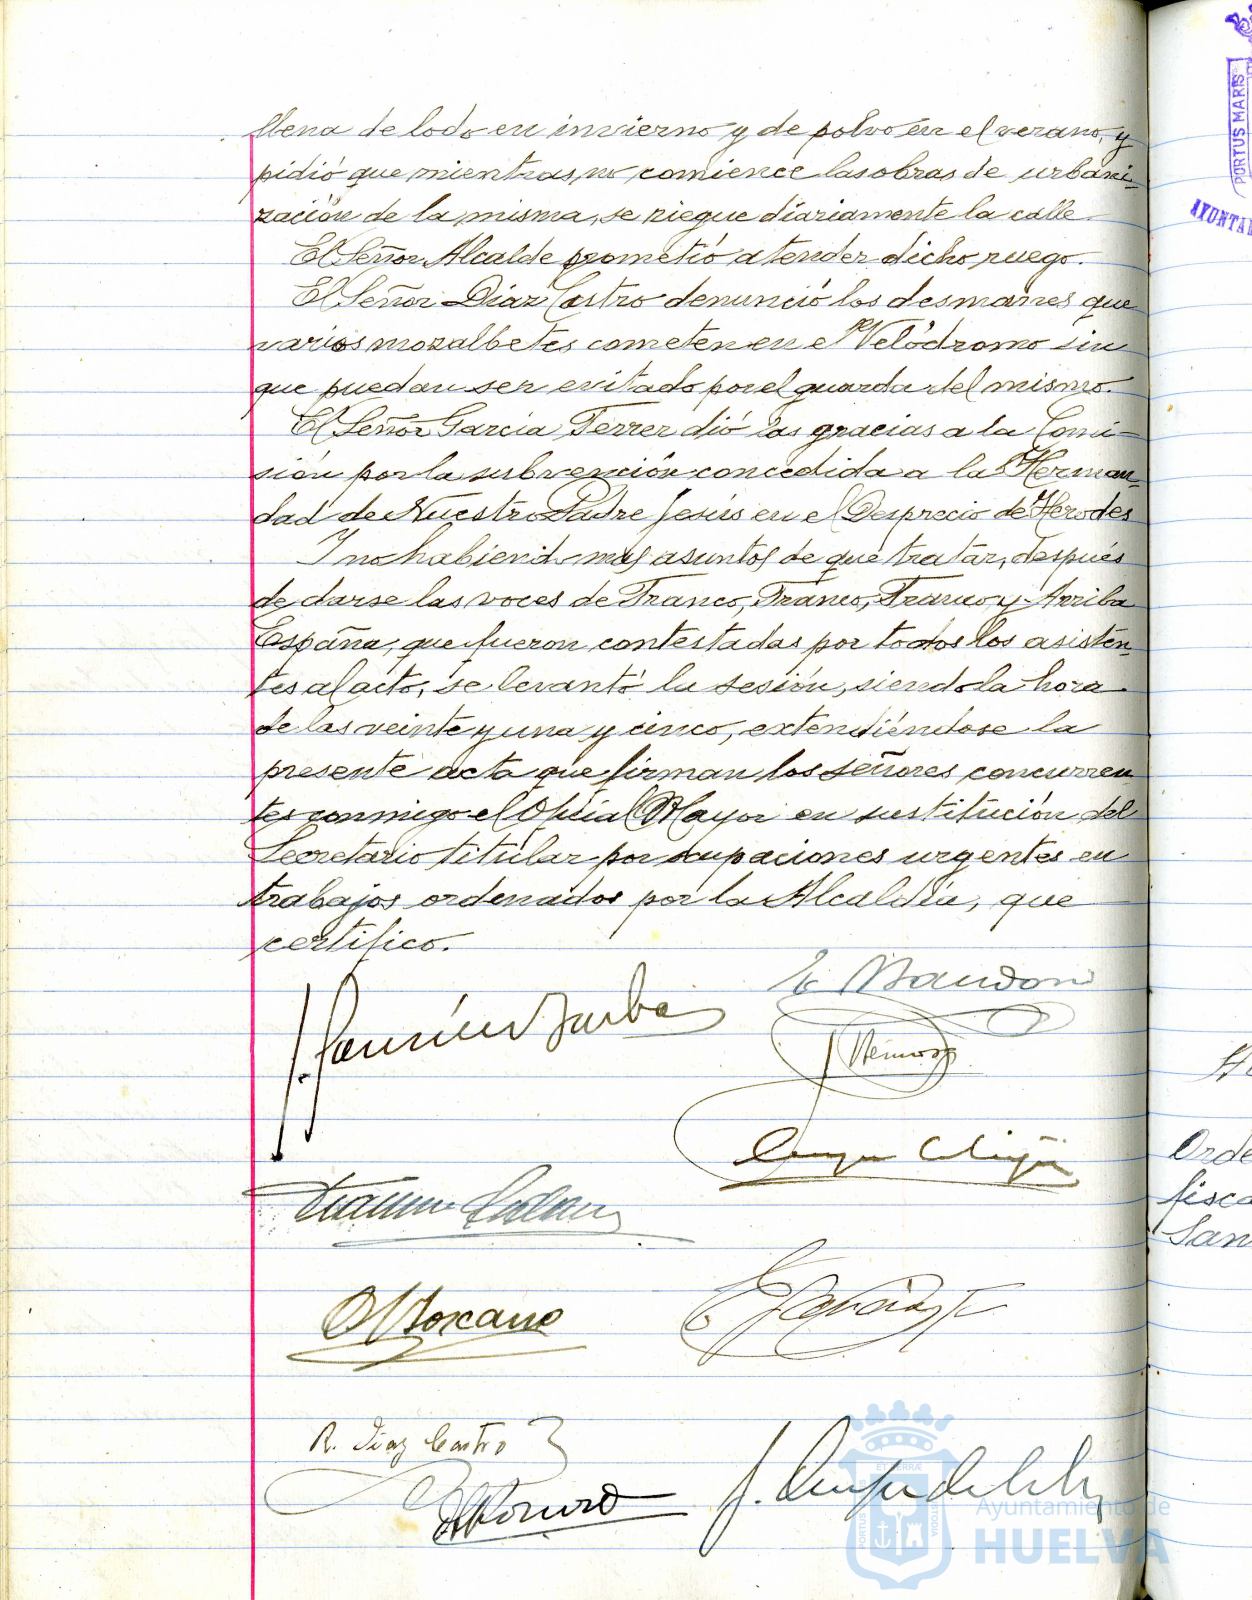 llena de lodo en invierno y de polvo en el verano, y
pidió que mientras no comience las obras de urbani-
zación de la misma, se riegue diariamente la calle.
El Señor Alcalde prometió atender dicho ruego.
El Señor Díaz Castro denunció los desmanes que
varios mozalbetes cometen en el Velódromo sin
que puedan ser evitado por el guarda del mismo.
El Señor García Ferrer dió las gracias a la Comi-
sión por la subvención concedida a la Herman-
dad de Nuestro Padre Jesús en el Desprecio de Herodes
Y no habiendo mas asuntos de que tratar, después
de darse las voces de Franco, Franco, Franco y Arriba
España, que fueron contestadas por todos los asisten-
tes al acto, se levantó la sesión, siendo la hora
de las veinte y una y cinco, extendiéndose la
presente acta que firman los señores concurren
tes conmigo el Oficial Mayor en sustitución del
Secretario titular por ocupaciones urgentes en
trabajos ordenados por la Alcaldía, que
certifico.
R. Díaz Castro
PORTUS MARIS
AYUNTA
Orde
fisca
San
Ayuntamiento de
HUELVA